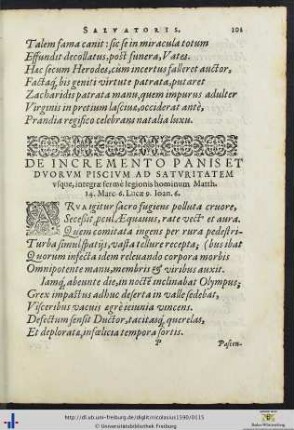 SALVATORIS. 101
Talem fama canit: sic se in miracula totum
Effundit decollatus, post funera, Vates.
Hæc secum Herodes, cùm incertus falleret auctor,
Factaq́, bis geniti virtute patrata, putaret
Zacharidis patrata manu, quem impurus adulter
Virginis in pretium lasciuæ, occiderat antè,
Prandia regifico celebrans natalia luxu.
DE INCREMENTO PANIS ET
DVORVM PISCIVM AD SATVRITATEM
vsque, integræ fermè legionis hominum Matth.
14. Marc. 6. Lucæ 9. Ioan. 6.
ARVA igitur sacro fugiens polluta cruore,
Secessit ṗcul Æquauus, rate vect⁹ et aura.
Quem comitata ingens per rura pedestri-
Turba simul spatijs, vasta tellure recepta; (bus ibat
Quorum infecta idem releuando corpora morbis
Omnipotente manu, membris & viribus auxit.
Iamq́, abeunte die, in noctē inclinabat Olympus;
Grex impastus adhuc deserta in valle sedebat,
Visceribus vacuis ægrè ieiunia vincens.
Defectum sensit Ductor, tacitasq́, querelas,
Et deplorata, infœlicia tempora sortis.
P Pasten-
http://dl.ub.uni-freiburg.de/diglit/nicolasius1590/0115
© Universitätsbibliothek Freiburg